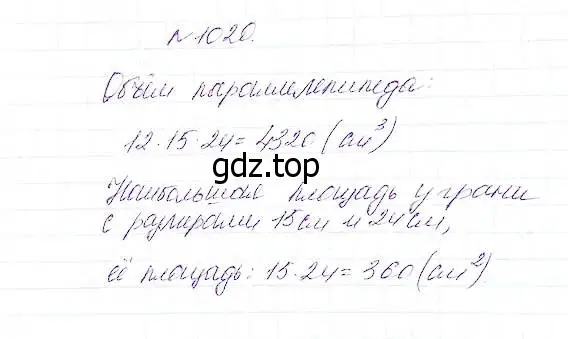 № 1020.
Объём параллелепипеда:
12·15·24=4320 (см³)
gdz.top
Наибольшая площадь у грани
с размерами 15 см и 24 см,
её площадь: 15·24=360 (см²)